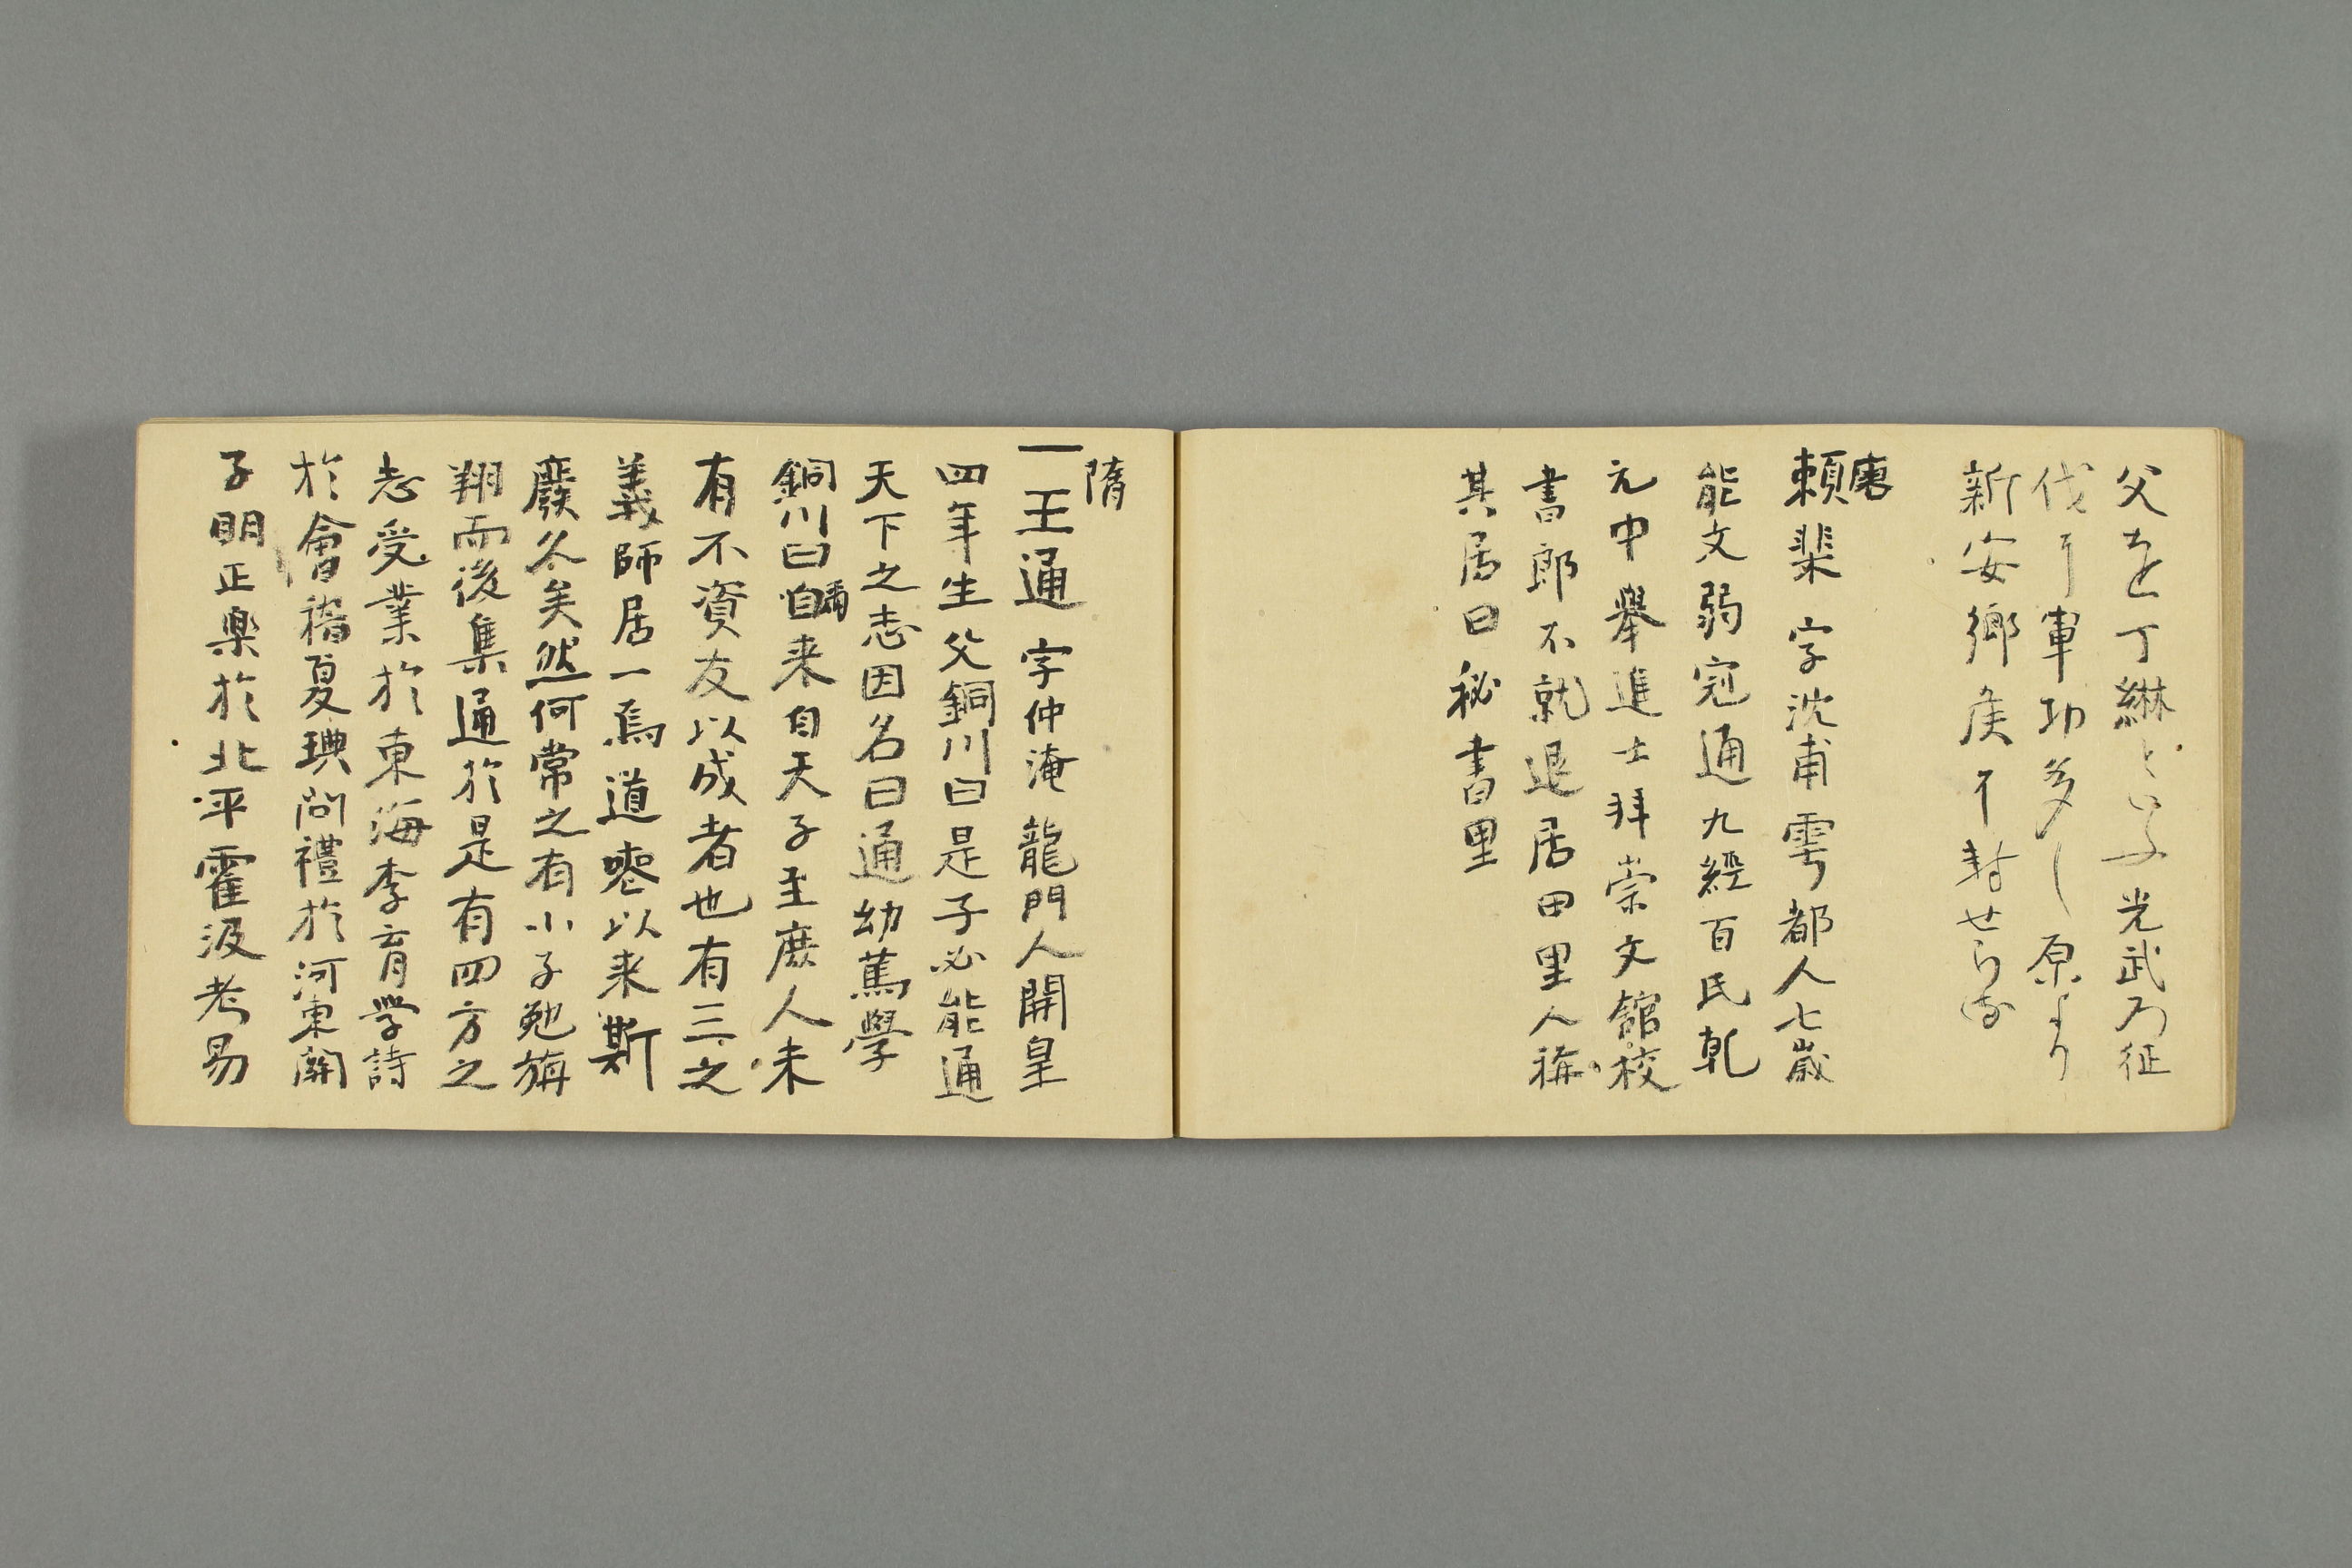 父を丁綝といふ光武の征
伐に軍功多し原より
新安鄉侯に封せらる
唐
賴棐 字沈甫雩都人七歲
能文弱冠通九經百氏乾
元中舉進士拜崇文館校
書郎不就退居田里人稱
其居曰秘書里
隋
一王通 字仲淹龍門人開皇
四年生父銅川曰是子必能通
天下之志因名曰通幼篤學
銅川曰自来自天子至庶人未
有不資友以成者也有三之
義師居一焉道喪以来斯
廢久矣然何常之有小子勉旃
翔而後集通於是有四方之
志受業於東海李育学詩
於會稽夏琠問禮於河東關
子明正楽於北平霍汲考易